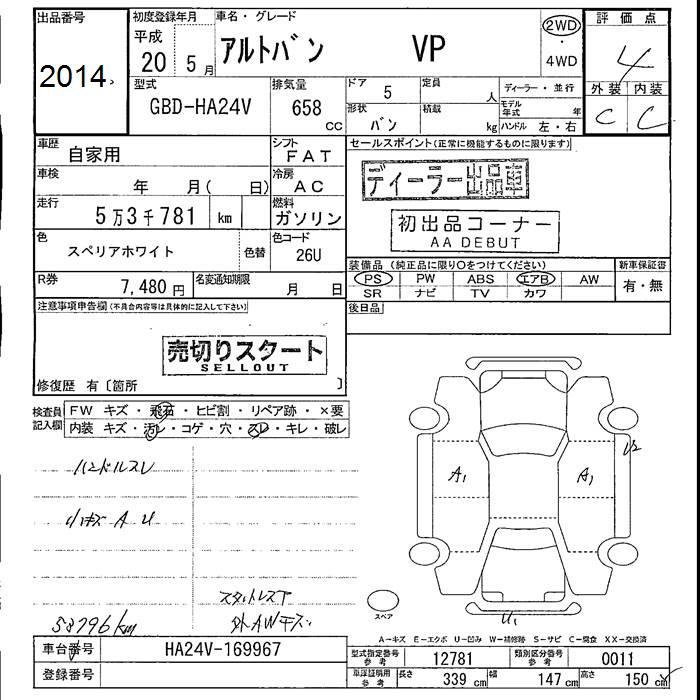 出品番号
2014
初度登録年月
平成
20 5月
車名・グレード
アルトバン VP
2WD
・
4WD
評価点
4
外装 内装
C C
型式
GBD-HA24V
排気量
658
CC
ドア
5
定員
人
形状
バン
積載
kg
ディーラー・並行
モデル
年式 年
ハンドル 左・右
車歴
自家用
シフト
FAT
車検
年 月( 日)
冷房
AC
走行
5万3千781 km
燃料
ガソリン
色
スペリアホワイト
色替
色コード
26U
R券
7,480円
名変通知期限
月 日
セールスポイント(正常に機能するものに限ります)
ディーラー出品車
初出品コーナー
AA DEBUT
装備品(純正品に限り○をつけてください)
PS PW ABS エアB AW
SR ナビ TV カワ
新車保証書
有・無
後日品
注意事項申告欄(不具合内容等は具体的に記入して下さい)
売切りスタート
SELLOUT
修復歴 有〔箇所 〕
検査員
記入欄
FW キズ・飛石・ヒビ割・リペア跡・×要
内装 キズ・汚レ・コゲ・穴・スレ・キレ・破レ
ハンドルスレ
小キズ A U
スタットレス下
外AWキズ
53796km
A1
A1
U2
U1
スペア
A-キズ E-エクボ U-凹み W-補修跡 S-サビ C-腐食 XX-交換済
車台番号
HA24V-169967
登録番号
型式指定番号
参考
12781
類別区分番号
参考
0011
車庫証明用
参考
長さ
339 cm
幅
147 cm
高さ
150 cm